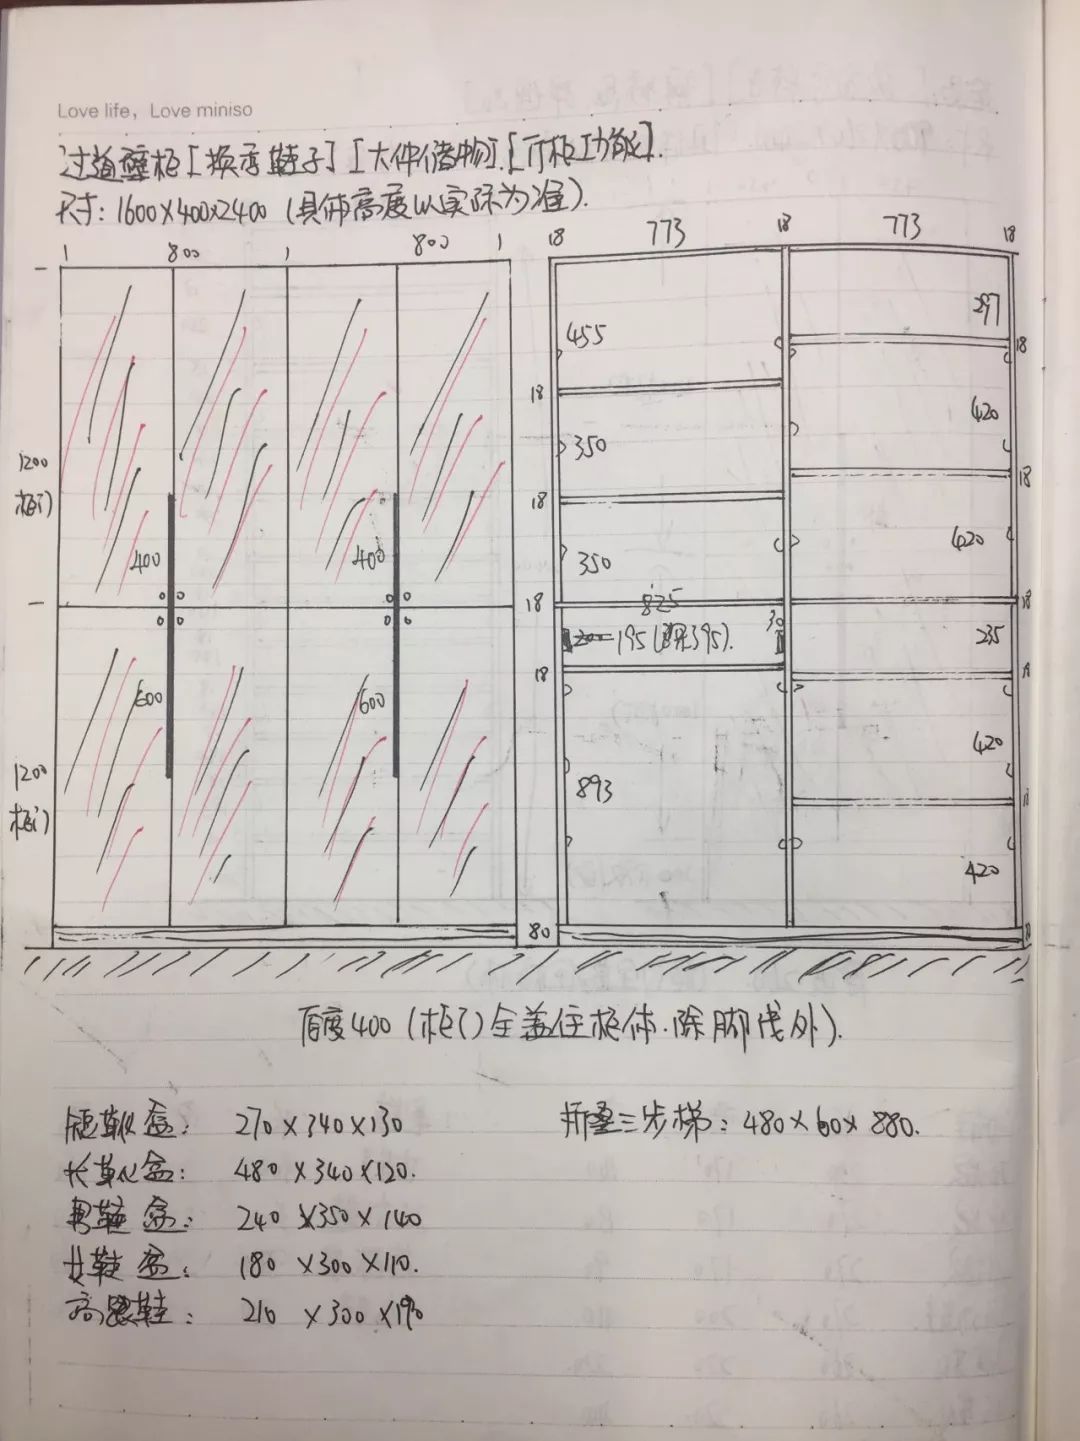 Love life, Love miniso
过道壁柜[换季鞋子][大件储物].[斤柜功能].
尺寸:1600×400×2400 (具体高度以实际为准).
800 800 18 773 18 773 18
455 297
18
18
350 420
1200
柜门
18 18
400 400 350 420
18 825 18
195 395). 30 235
18
600 600
420
1200
柜门
893
420
80
400 (柜门全盖住柜体.除脚线外).
短靴盒: 270×340×130
折叠三步梯: 480×60×880.
长靴盒: 480×340×120.
男鞋盒: 240×350×140
女鞋盒: 180×300×110.
高跟鞋: 210×300×190